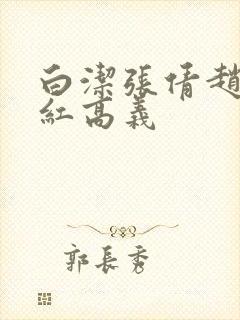 白潔張倩趙
紅高義
郭長秀